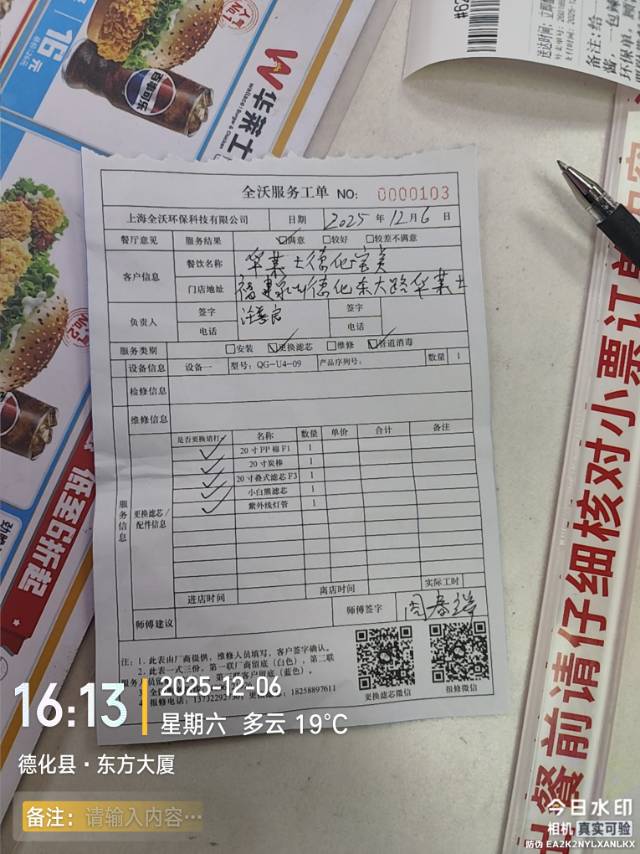 16元
百事可乐
人气
No.1
W华莱士
低至5折起
#629
备注:给
全沃服务工单 NO: 0000103
上海全沃环保科技有限公司 日期 2025年12月6日
餐厅意见 服务结果 ☑满意 □较好 □较差不满意
客户信息 餐饮名称 华莱士德化宝美
门店地址 福建泉州德化东大路华莱士
负责人 签字 签字
电话 电话
服务类别 □安装 ☑更换滤芯 □维修 ☑管道消毒
设备信息 设备一 型号: QG-U4-09 产品序列号: 数量 1
检修信息
维修信息
服务信息
更换滤芯/配件信息
是否更换请打✓ 名称 数量 单价 合计 备注
✓ 20寸PP棉F1 1
✓ 20寸炭棒 1
✓ 20寸叠式滤芯F3 1
✓ 小白熊滤芯 1
✓ 紫外线灯管 1
进店时间 离店时间 实际工时
师傅建议 师傅签字
注: 1. 此表由厂商提供, 维修人员填写, 客户签字确认。
2. 此表一式三份, 第一联厂商留底(白色), 第二联
留底(蓝色)。
18258897611
更换滤芯微信 报修微信
出餐前请仔细核对小票订
16:13
2025-12-06
星期六 多云 19°C
德化县·东方大厦
备注: 请输入内容…
今日水印
相机 真实可验
防伪 EA2K2NYLXANLKX